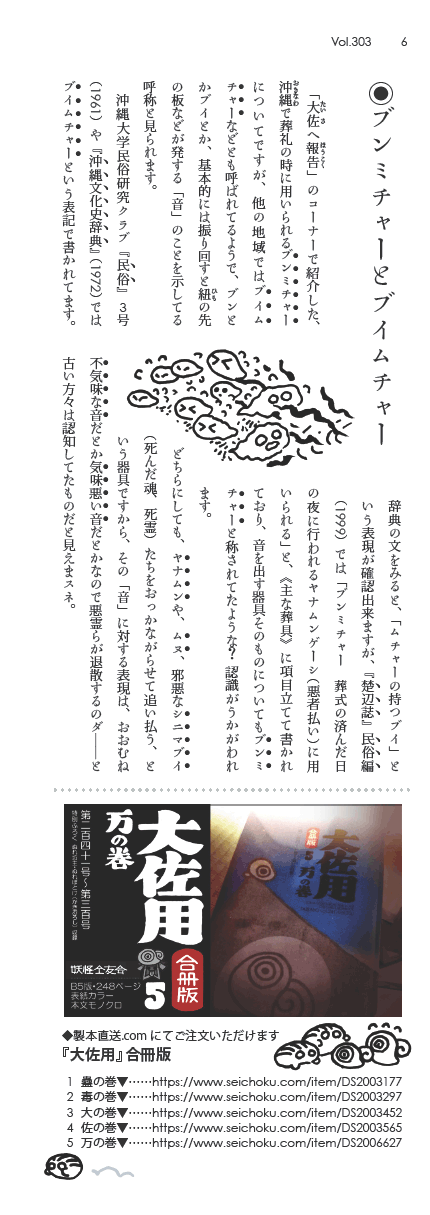 Vol.303 6
◉ブンミチャーとブイムチャー
「大佐へ報告」のコーナーで紹介した、
沖縄で葬礼の時に用いられるブンミチャー
についてですが、他の地域ではブイム
チャーなどとも呼ばれてるようで、ブンと
かブイとか、基本的には振り回すと紐の先
の板などが発する「音」のことを示してる
呼称と見られます。
沖縄大学民俗研究クラブ『民俗』3号
(1961)や『沖縄文化史辞典』(1972)では
ブイムチャーという表記で書かれてます。
辞典の文をみると、「ムチャーの持つブイ」と
いう表現が確認出来ますが、『楚辺誌』民俗編
(1999)では「ブンミチャー 葬式の済んだ日
の夜に行われるヤナムンゲーシ(悪者払い)に用
いられる」と、《主な葬具》に項目立てて書かれ
ており、音を出す器具そのものについてもブンミ
チャーと称されてたような?認識がうかがわれ
ます。
どちらにしても、ヤナムンや、ムヌ、邪悪なシニマブイ
(死んだ魂、死霊)たちをおっかながらせて追い払う、と
いう器具ですから、その「音」に対する表現は、おおむね
不気味な音だとか気味悪い音だとかなので悪霊らが退散するのダ――と
古い方々は認知してたものだと見えまスネ。
大佐用
万の巻
第二百四十一号〜第三百号
妖怪全友会
B5版・248ページ
表紙カラー
本文モノクロ
5
合冊版
大佐用
合冊版
5 万の巻
◆製本直送.comにてご注文いただけます
『大佐用』合冊版
1 蟲の巻▼……https://www.seichoku.com/item/DS2003177
2 毒の巻▼……https://www.seichoku.com/item/DS2003297
3 大の巻▼……https://www.seichoku.com/item/DS2003452
4 佐の巻▼……https://www.seichoku.com/item/DS2003565
5 万の巻▼……https://www.seichoku.com/item/DS2006627